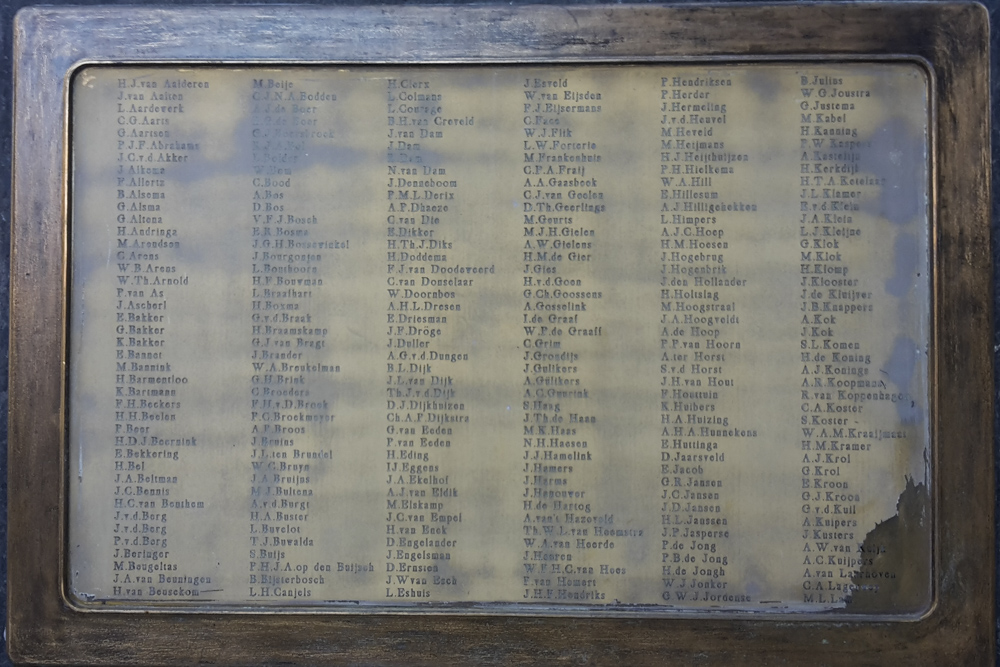 H.J.van Aalderen
J.van Aalten
L.Aardewerk
C.G.Aarts
G.Aartsen
P.J.F.Abrahams
J.C.v.d.Akker
J.Alkema
F.Allertz
B.Alsema
G.Alsma
G.Altena
H.Andringa
M.Arendsen
C.Arens
W.B.Arens
W.Th.Arnold
P.van As
J.Ascherl
E.Bakker
G.Bakker
K.Bakker
E.Bannet
M.Bannink
H.Barmentloo
K.Bartmann
F.H.Beckers
H.H.Beelen
P.Beer
H.D.J.Beernink
E.Bekkering
H.Bel
J.A.Beltman
J.C.Bennis
H.C.van Benthem
J.v.d.Berg
J.v.d.Berg
P.v.d.Berg
J.Beringer
M.Beugeltas
J.A.van Beuningen
H.van Beusekom
M.Beije
C.J.N.A.Bodden
C.Bood
A.Bos
D.Bos
V.F.J.Bosch
E.R.Bosma
J.G.H.Bossewinkel
J.Bourgonjen
L.Bouthoorn
H.F.Bouwman
L.Braafhart
H.Boxma
G.v.d.Braak
H.Braamskamp
G.J.van Bragt
J.Brander
W.A.Breukelman
G.H.Brink
C.Broeders
F.H.v.D.Broek
P.C.Broekmeyer
A.P.Broos
J.Bruins
J.L.ten Brundel
W.G.Bruyn
J.A.Bruijns
M.J.Bultena
A.v.d.Burgt
H.A.Buster
L.Buvelot
T.J.Buwalda
S.Buijs
P.H.J.A.op den Buijsch
B.Bijsterbosch
L.H.Canjels
H.Cierx
L.Colmans
L.Courage
B.H.van Creveld
J.van Dam
J.Dam
R.Dam
N.van Dam
J.Denneboom
P.M.L.Derix
A.F.Dhaeze
C.van Die
E.Dikker
H.Th.J.Diks
H.Doddema
F.J.van Doodeweerd
C.van Donselaar
W.Doornbos
A.H.L.Dresen
E.Driesman
J.F.Dröge
J.Duller
A.G.v.d.Dungen
B.L.Dijk
J.L.van Dijk
Th.J.v.d.Dijk
D.J.Dijkhuizen
Ch.A.F.Dijkstra
G.van Eeden
P.van Eeden
H.Eding
IJ.Eggens
J.A.Ekelhof
A.J.van Eldik
M.Elskamp
J.C.van Empel
H.van Enek
D.Engelander
J.Engelsman
D.Ernsten
J.W.van Esch
L.Eshuis
J.Esveld
W.van Eijsden
F.J.Eijsermans
C.Faas
W.J.Flik
L.W.Forterie
M.Frankenhuis
C.P.A.Fraij
A.A.Gaasbeek
C.J.van Geelen
D.Th.Geerlings
M.Geurts
M.J.H.Gielen
A.W.Gielens
H.M.de Gier
J.Gies
H.v.d.Goen
G.Ch.Goossens
A.Gosselink
I.de Graaf
W.F.de Graaff
C.Grim
J.Grondijs
J.Gulikers
A.Gulikers
A.C.Guurink
S.Haag
J.Th.de Haan
M.K.Haas
N.H.Haesen
J.J.Hamelink
J.Hamers
J.Harms
J.Hegouwer
H.de Hartog
A.van't Hazeveld
Th.W.L.van Heemstra
W.A.van Heerde
J.Heeren
W.F.H.C.van Hees
F.van Hemert
J.H.F.Hendriks
P.Hendriksen
P.Herder
J.Hermeling
J.v.d.Heuvel
M.Heveld
M.Heijmans
H.J.Heijthuijzen
F.H.Hielkema
W.A.Hill
E.Hillesum
A.J.Hilligehekken
L.Himpers
A.J.C.Hoep
H.M.Hoesen
J.Hogebrug
J.Hogenbrik
J.den Hollander
H.Holtslag
M.Hoogstraal
J.A.Hoogveldt
A.de Hoop
P.P.van Hoorn
A.ter Horst
S.v.d Horst
J.H.van Hout
F.Houttuin
K.Huibers
H.A.Huizing
A.H.A.Hunnekens
E.Huttinga
D.Jaarsveld
E.Jacob
G.R.Jansen
J.C.Jansen
J.D.Jansen
H.L.Janssen
J.P.Jasperse
P.de Jong
P.B.de Jong
H.de Jongh
W.J.Jonker
G.W.J.Jordense
B.Julius
W.G.Joustra
G.Justema
M.Kabel
H.Kanning
A.Kastelijn
H.Kerkdijk
H.T.A.Ketelaar
J.L.Klamer
E.v.d Klein
J.A.Klein
L.J.Kleijne
G.Klok
M.Klok
H.Klomp
J.Klooster
J.de Kluijver
J.B.Knappers
A.Kok
J.Kok
S.L.Komen
H.de Koning
A.J.Konings
A.R.Koopmans
R.van Koppenhagen
C.A.Koster
S.Koster
W.A.M.Kraaijment
H.M.Kramer
A.J.Krol
G.Krol
E.Kroon
G.J.Kroos
G.v.d.Kuil
A.Kuipers
J.Kusters
A.W.van
A.C.Kuijpers
A.van Laarhoven
G.A.
M.L.